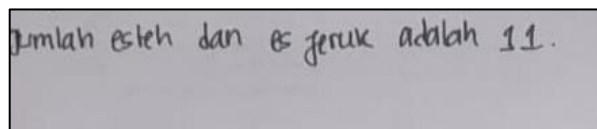 Jumlah esteh dan es jeruk adalah 11.